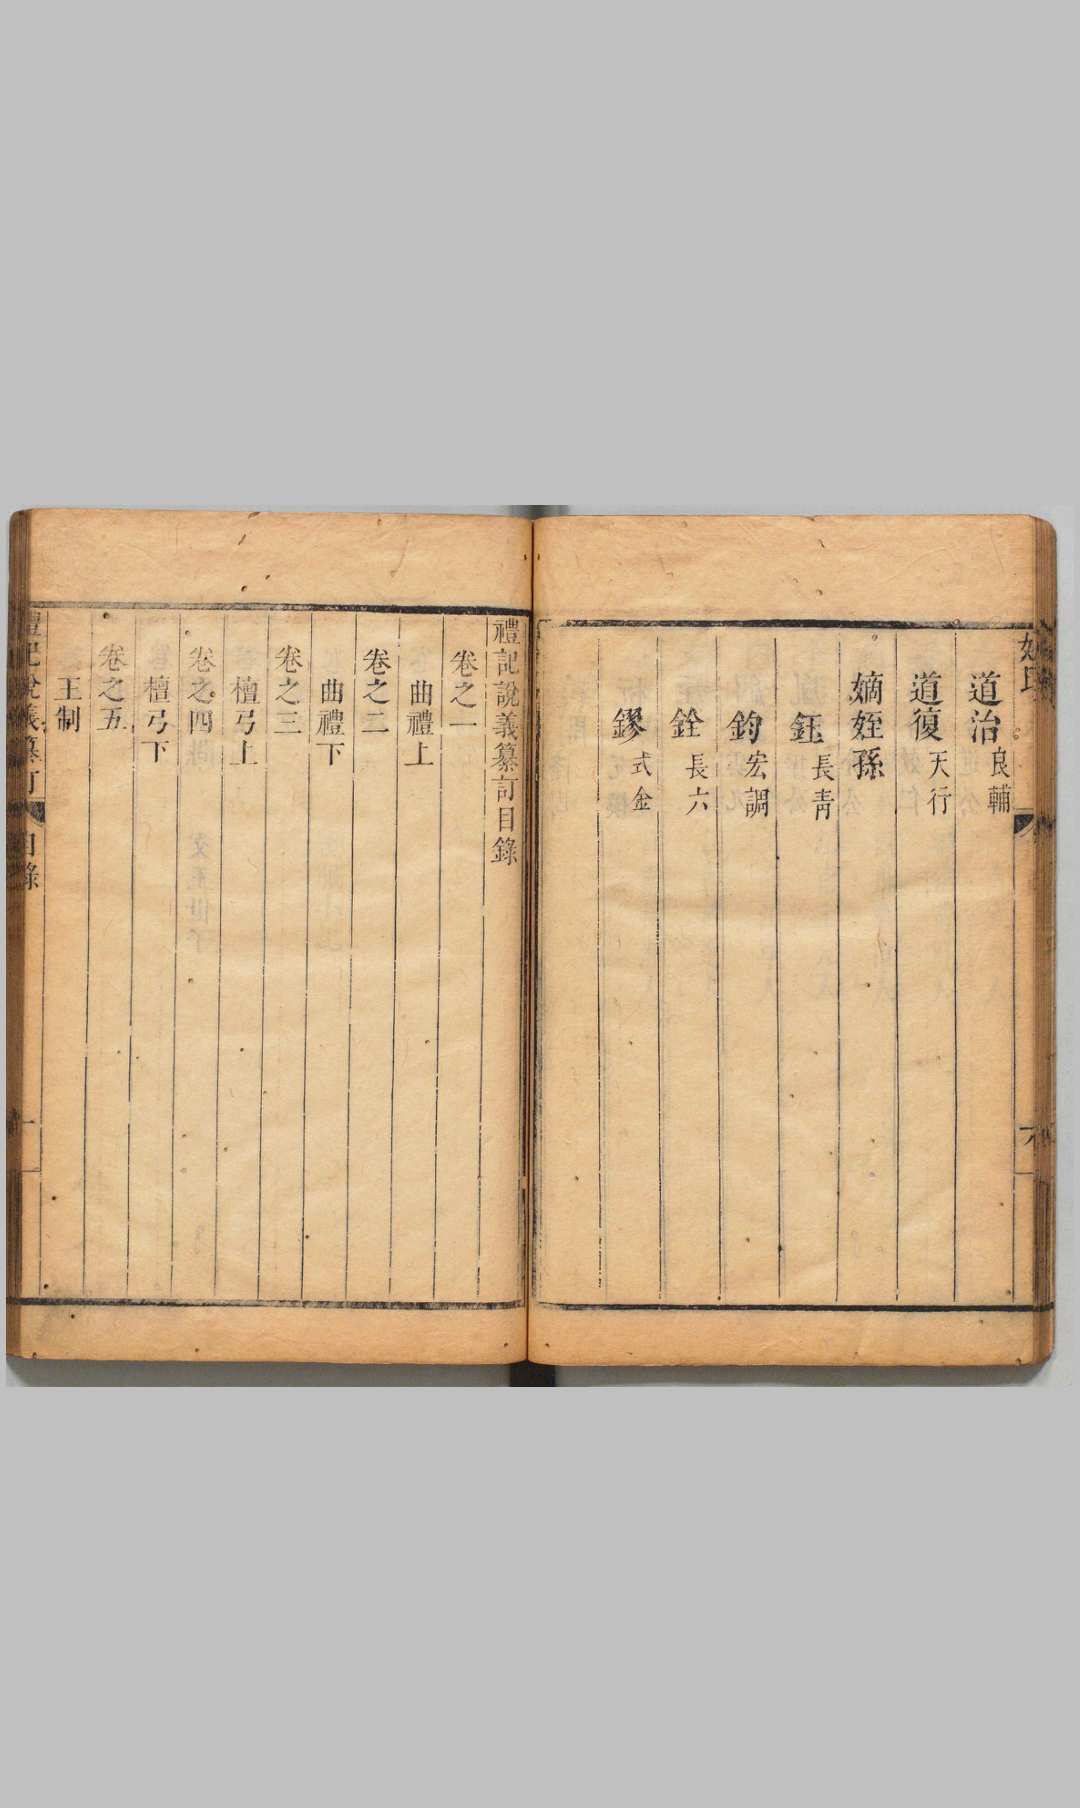 道治 良輔
道復 天行
嫡姪孫
鈺 長靑
鈞 宏調
銓 長六
鏐 式金
禮記說義纂訂目錄
卷之一
曲禮上
卷之二
曲禮下
卷之三
檀弓上
卷之四
檀弓下
卷之五
王制